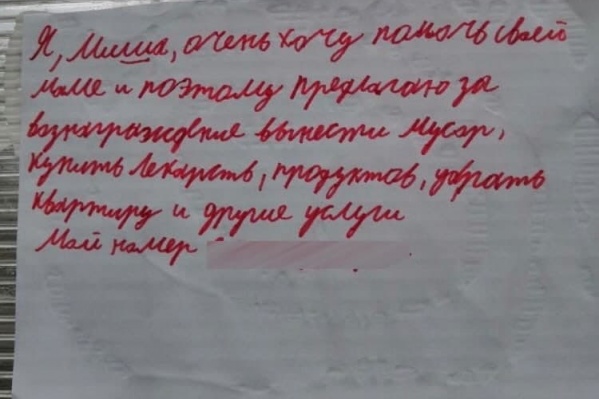 Я, Миша, очень хочу помочь своей
маме и поэтому предлагаю за
вознаграждение вынести мусор,
купить лекарств, продуктов, убрать
квартиру и другие услуги
Мой номер